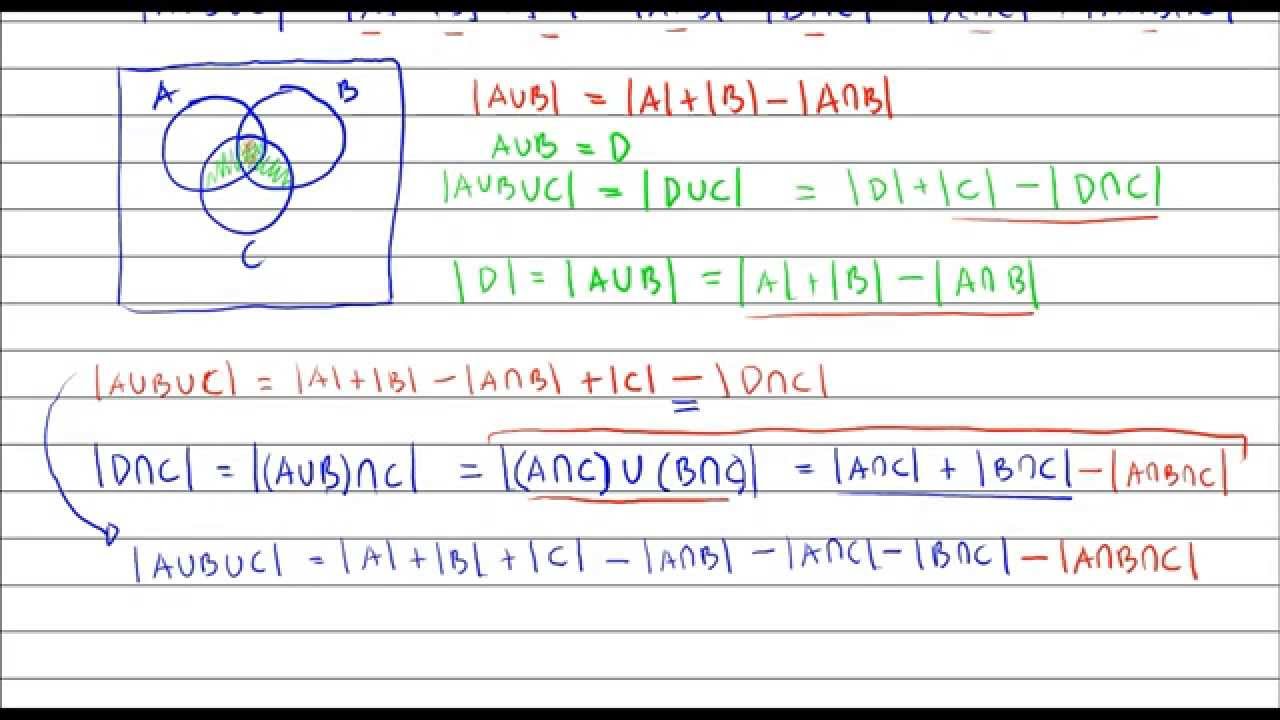 A B
C
|A∪B| = |A|+|B|-|A∩B|
A∪B = D
|A∪B∪C| = |D∪C| = |D|+|C|-|D∩C|
|D| = |A∪B| = |A|+|B|-|A∩B|
|A∪B∪C| = |A|+|B|-|A∩B|+|C|-|D∩C|
|D∩C| = |(A∪B)∩C| = |(A∩C)∪(B∩C)| = |A∩C|+|B∩C|-|A∩B∩C|
|A∪B∪C| = |A|+|B|+|C|-|A∩B|-|A∩C|-|B∩C|-|A∩B∩C|